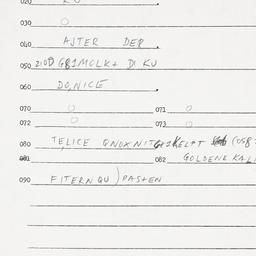 020 KU
030 O
040 AJTER DER
050 2100 GB1MCLK+ DI KU
060 DO,NICE
070 O 071 O
072 O 073 O
080 TE,LICE QNOXNIT (058
081 082 GOLDENE KAL
090 FITERNQU) PASTEN